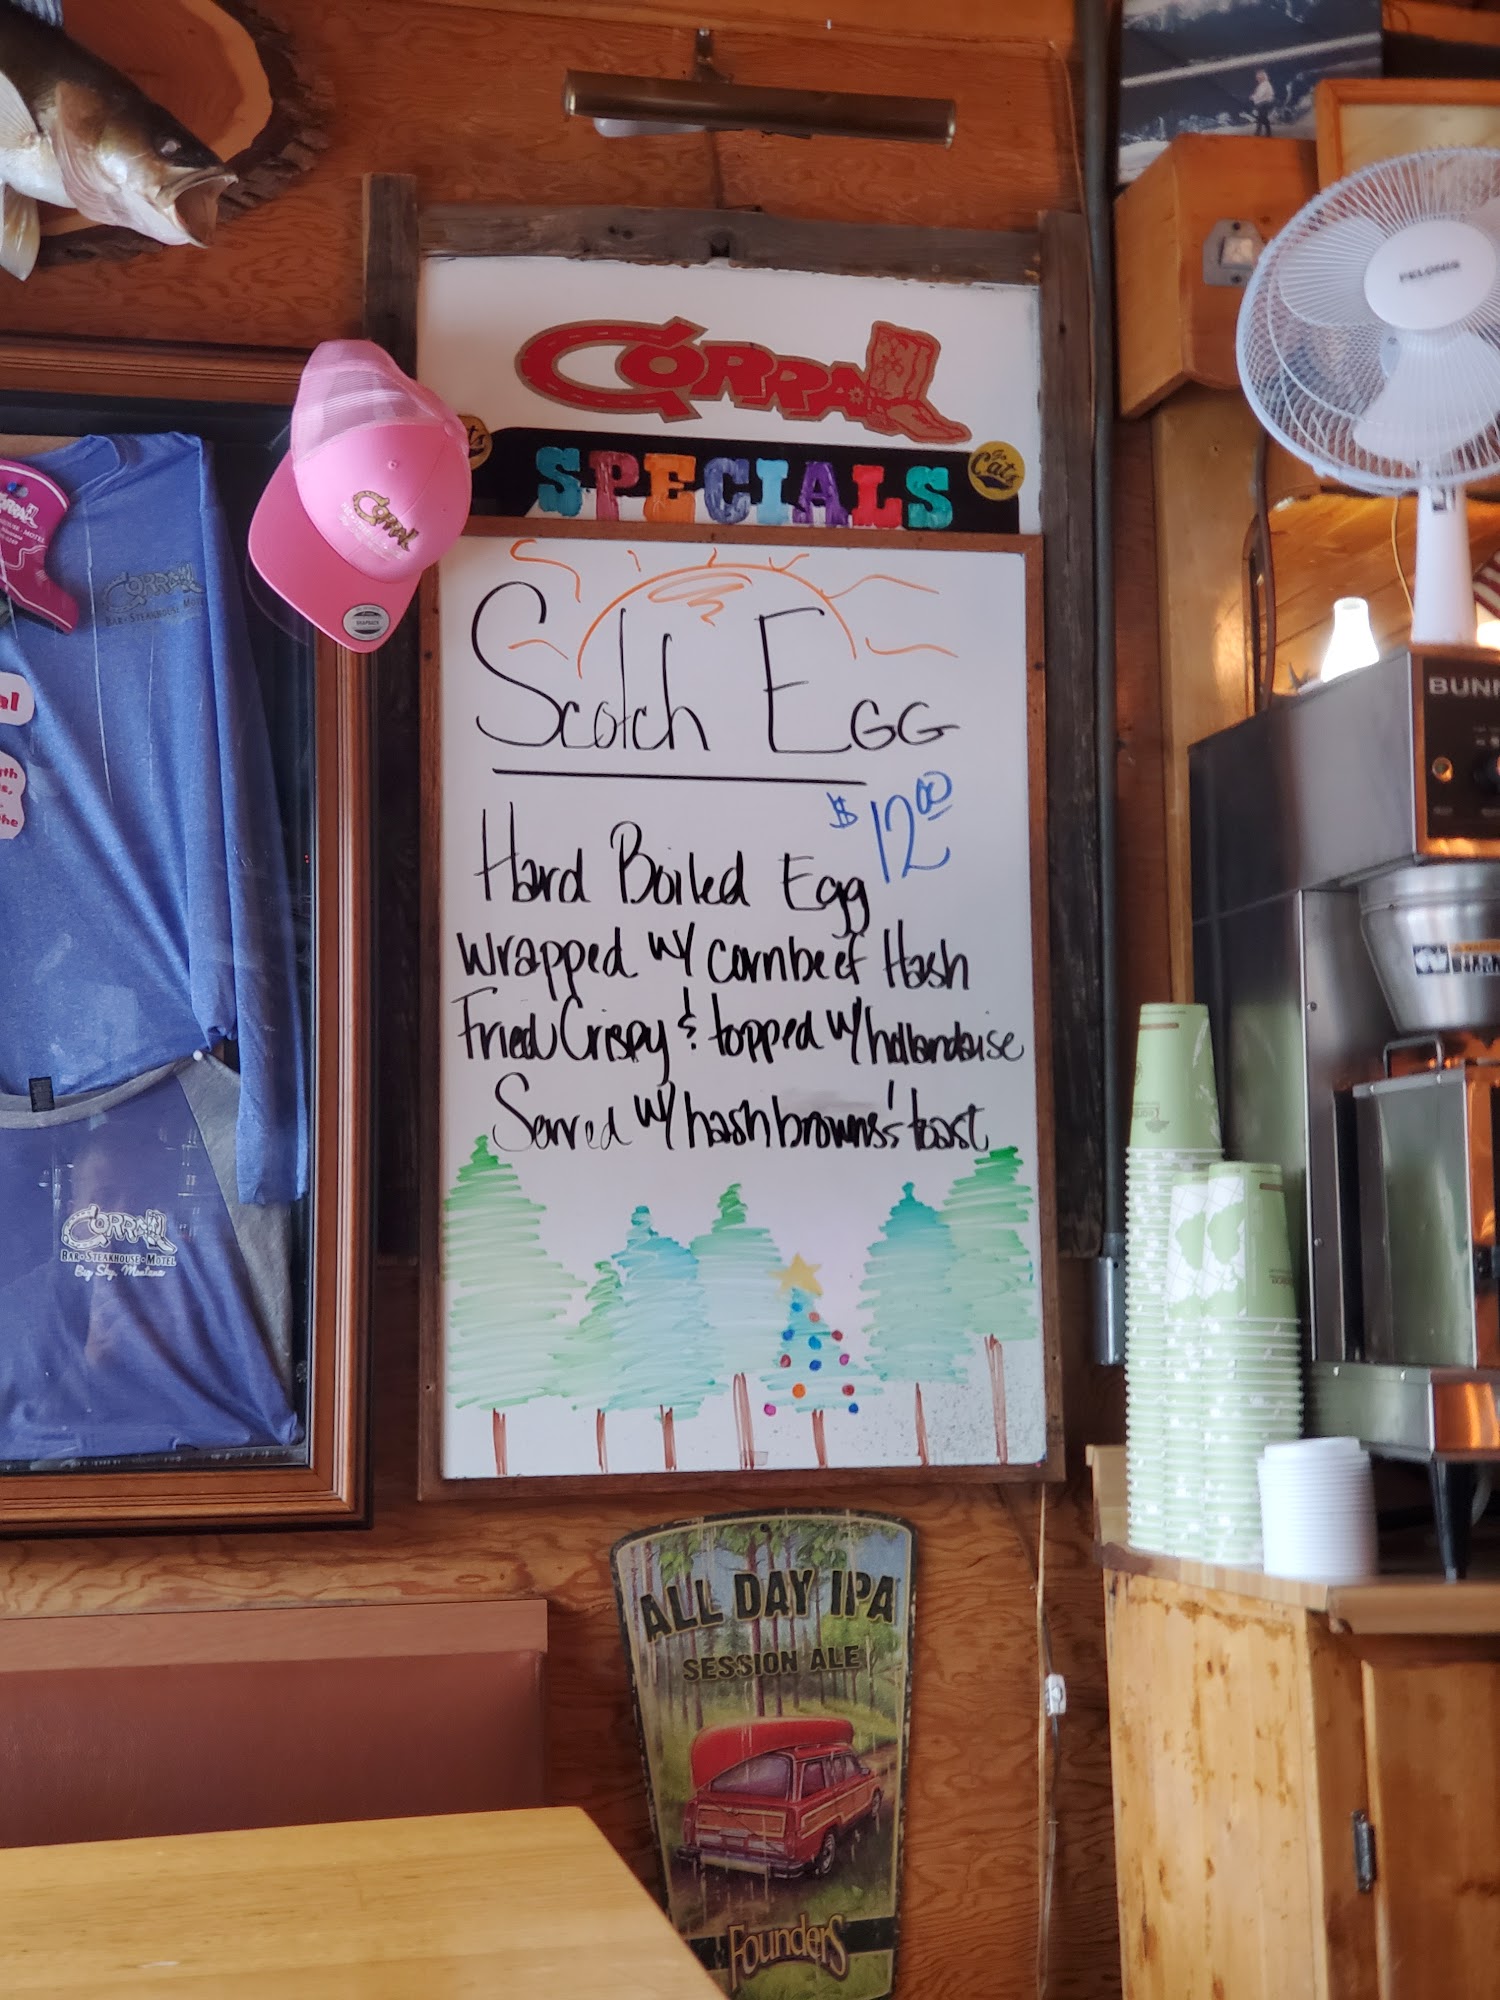 CORRAL
SPECIALS
Go
Cats
Scotch Egg
$12.00
Hard Boiled Egg
wrapped w/ cornbeef Hash
Fried Crispy & topped w/ hollandaise
Served w/ hashbrowns & toast
CORRAL
CORRAL
CORRAL
BAR • STEAKHOUSE • MOTEL
CORRAL
BAR • STEAKHOUSE • MOTEL
Big Sky, Montana
PELONIS
BUNN
ALL DAY IPA
SESSION ALE
FOUNDERS